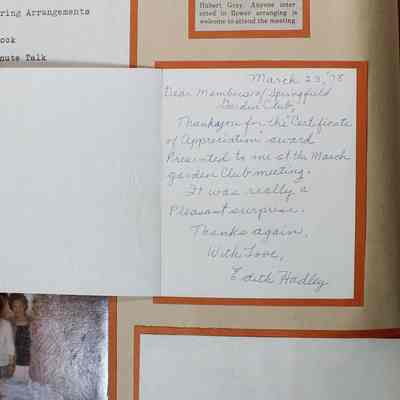 ring Arrangements
ook
nute Talk
Hubert Gray. Anyone inter
ested in flower arranging is
welcome to attend the meeting
March 23, '78
Dear Members of Springfield
Garden Club,
Thank you for the "Certificate
of Appreciation" award
Presented to me at the March
garden Club meeting.
It was really a
Pleasant surprise.
Thanks again,
With Love,
Edith Hadley